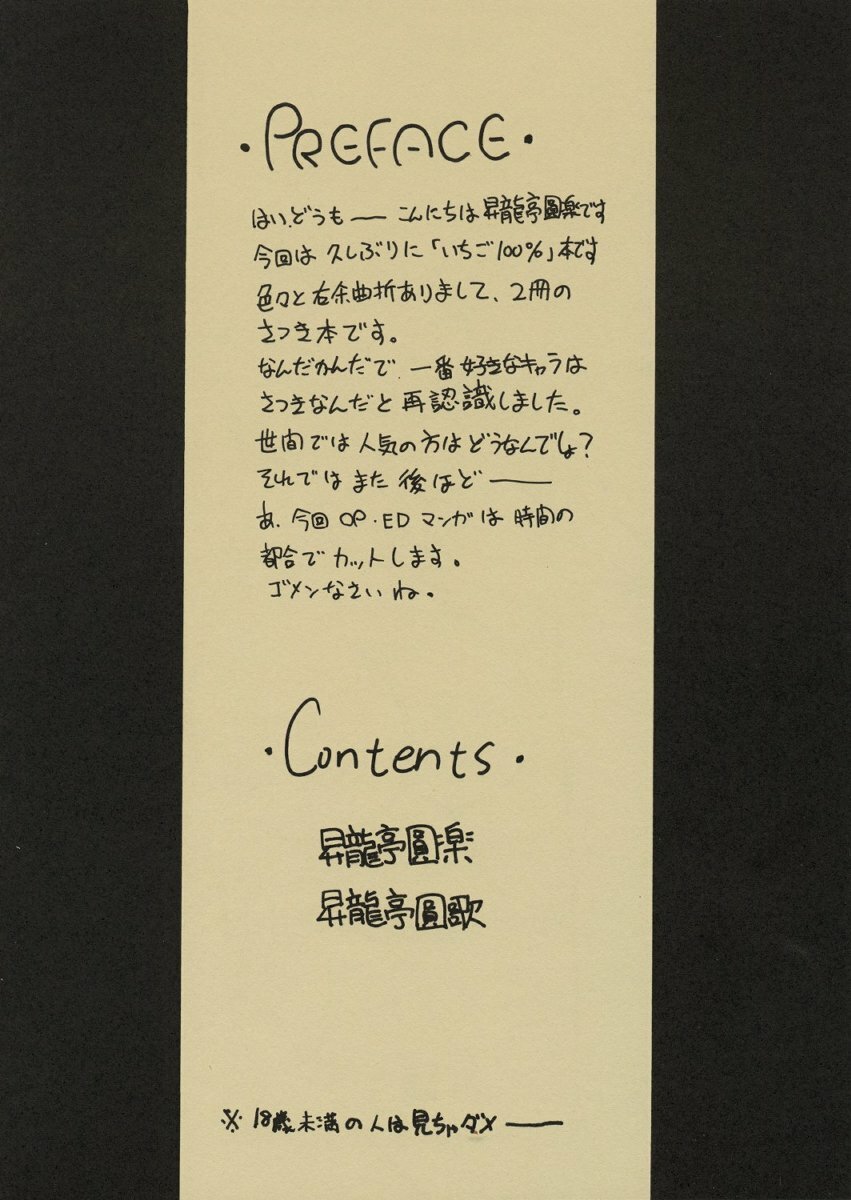 ・PREFACE・
はい、どうもー こんにちは昇龍亭圓楽です
今回は 久しぶりに「いちご100%」本です
色々と右余曲折ありまして、2冊の
さつき本です。
なんだかんだで、一番好きなキャラは
さつきなんだと 再認識しました。
世間では 人気の方はどうなんでしょ?
それでは また 後ほどー
あ、今回 OP・ED マンガは 時間の
都合で カットします。
ゴメンなさいね。
・Contents・
昇龍亭圓楽
昇龍亭圓歌
※ 18歳未満の人は見ちゃダメー